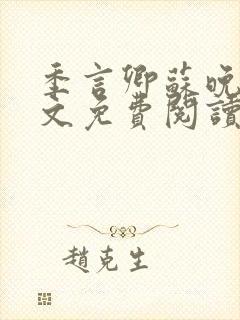 季言卿蘇晚
文免費閱讀
趙克生